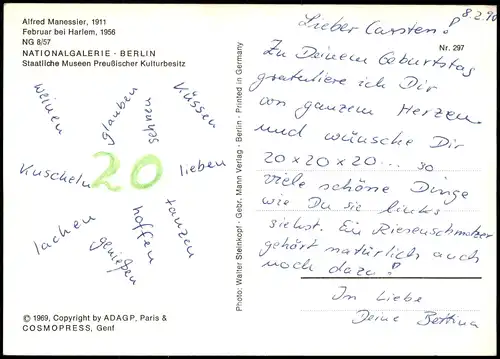 Alfred Manessier, 1911
Februar bei Harlem, 1956
NG 8/57
NATIONALGALERIE · BERLIN
Staatliche Museen Preußischer Kulturbesitz
weinen
glauben
sehnen
Küssen
Kuscheln
20
lieben
lachen
genießen
hoffen
tanzen
© 1969, Copyright by ADAGP, Paris &
COSMOPRESS, Genf
Photo: Walter Steinkopf · Gebr. Mann Verlag · Berlin · Printed in Germany
8.2.90
Nr. 297
Lieber Carsten!
Zu Deinem Geburtstag
gratuliere ich Dir
von ganzem Herzen
und wünsche Dir
20 x 20 x 20 ... so
viele schöne Dinge
wie Du sie links
siehst. Ein Riesenschmatzer
gehört natürlich auch
noch dazu!
In Liebe
Deine Bettina